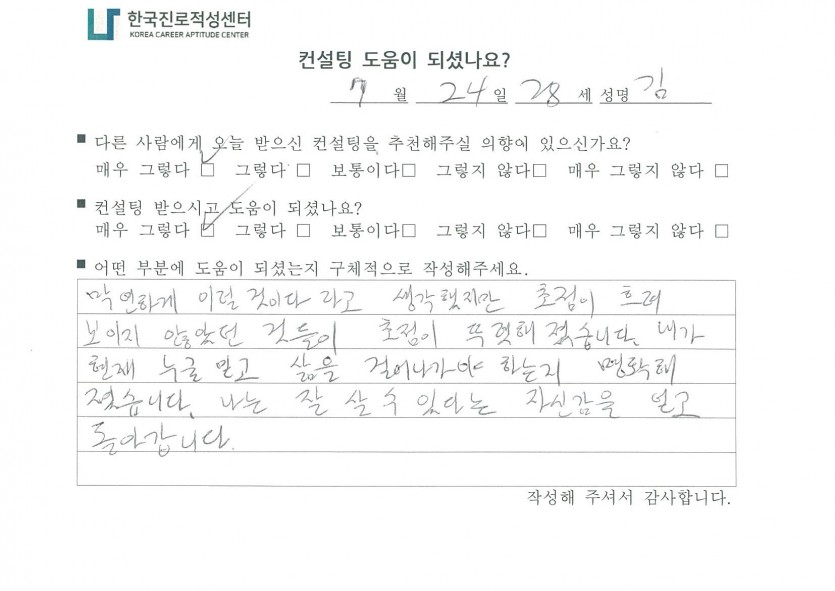 한국진로적성센터
KOREA CAREER APTITUDE CENTER
컨설팅 도움이 되셨나요?
7 월 24 일 28 세 성명 김
■ 다른 사람에게 오늘 받으신 컨설팅을 추천해주실 의향이 있으신가요?
매우 그렇다 ☑ 그렇다 □ 보통이다□ 그렇지 않다□ 매우 그렇지 않다 □
■ 컨설팅 받으시고 도움이 되셨나요?
매우 그렇다 ☑ 그렇다 □ 보통이다□ 그렇지 않다□ 매우 그렇지 않다 □
■ 어떤 부분에 도움이 되셨는지 구체적으로 작성해주세요.
막연하게 이럴 것이다 라고 생각했지만 초점이 흐려
보이지 않았던 것들이 초점이 뚜렷해 졌습니다. 내가
현재 누굴 믿고 삶을 걸어나가야 하는지 명확해
졌습니다. 나는 잘 살 수 있다는 자신감을 얻고
돌아갑니다.
작성해 주셔서 감사합니다.